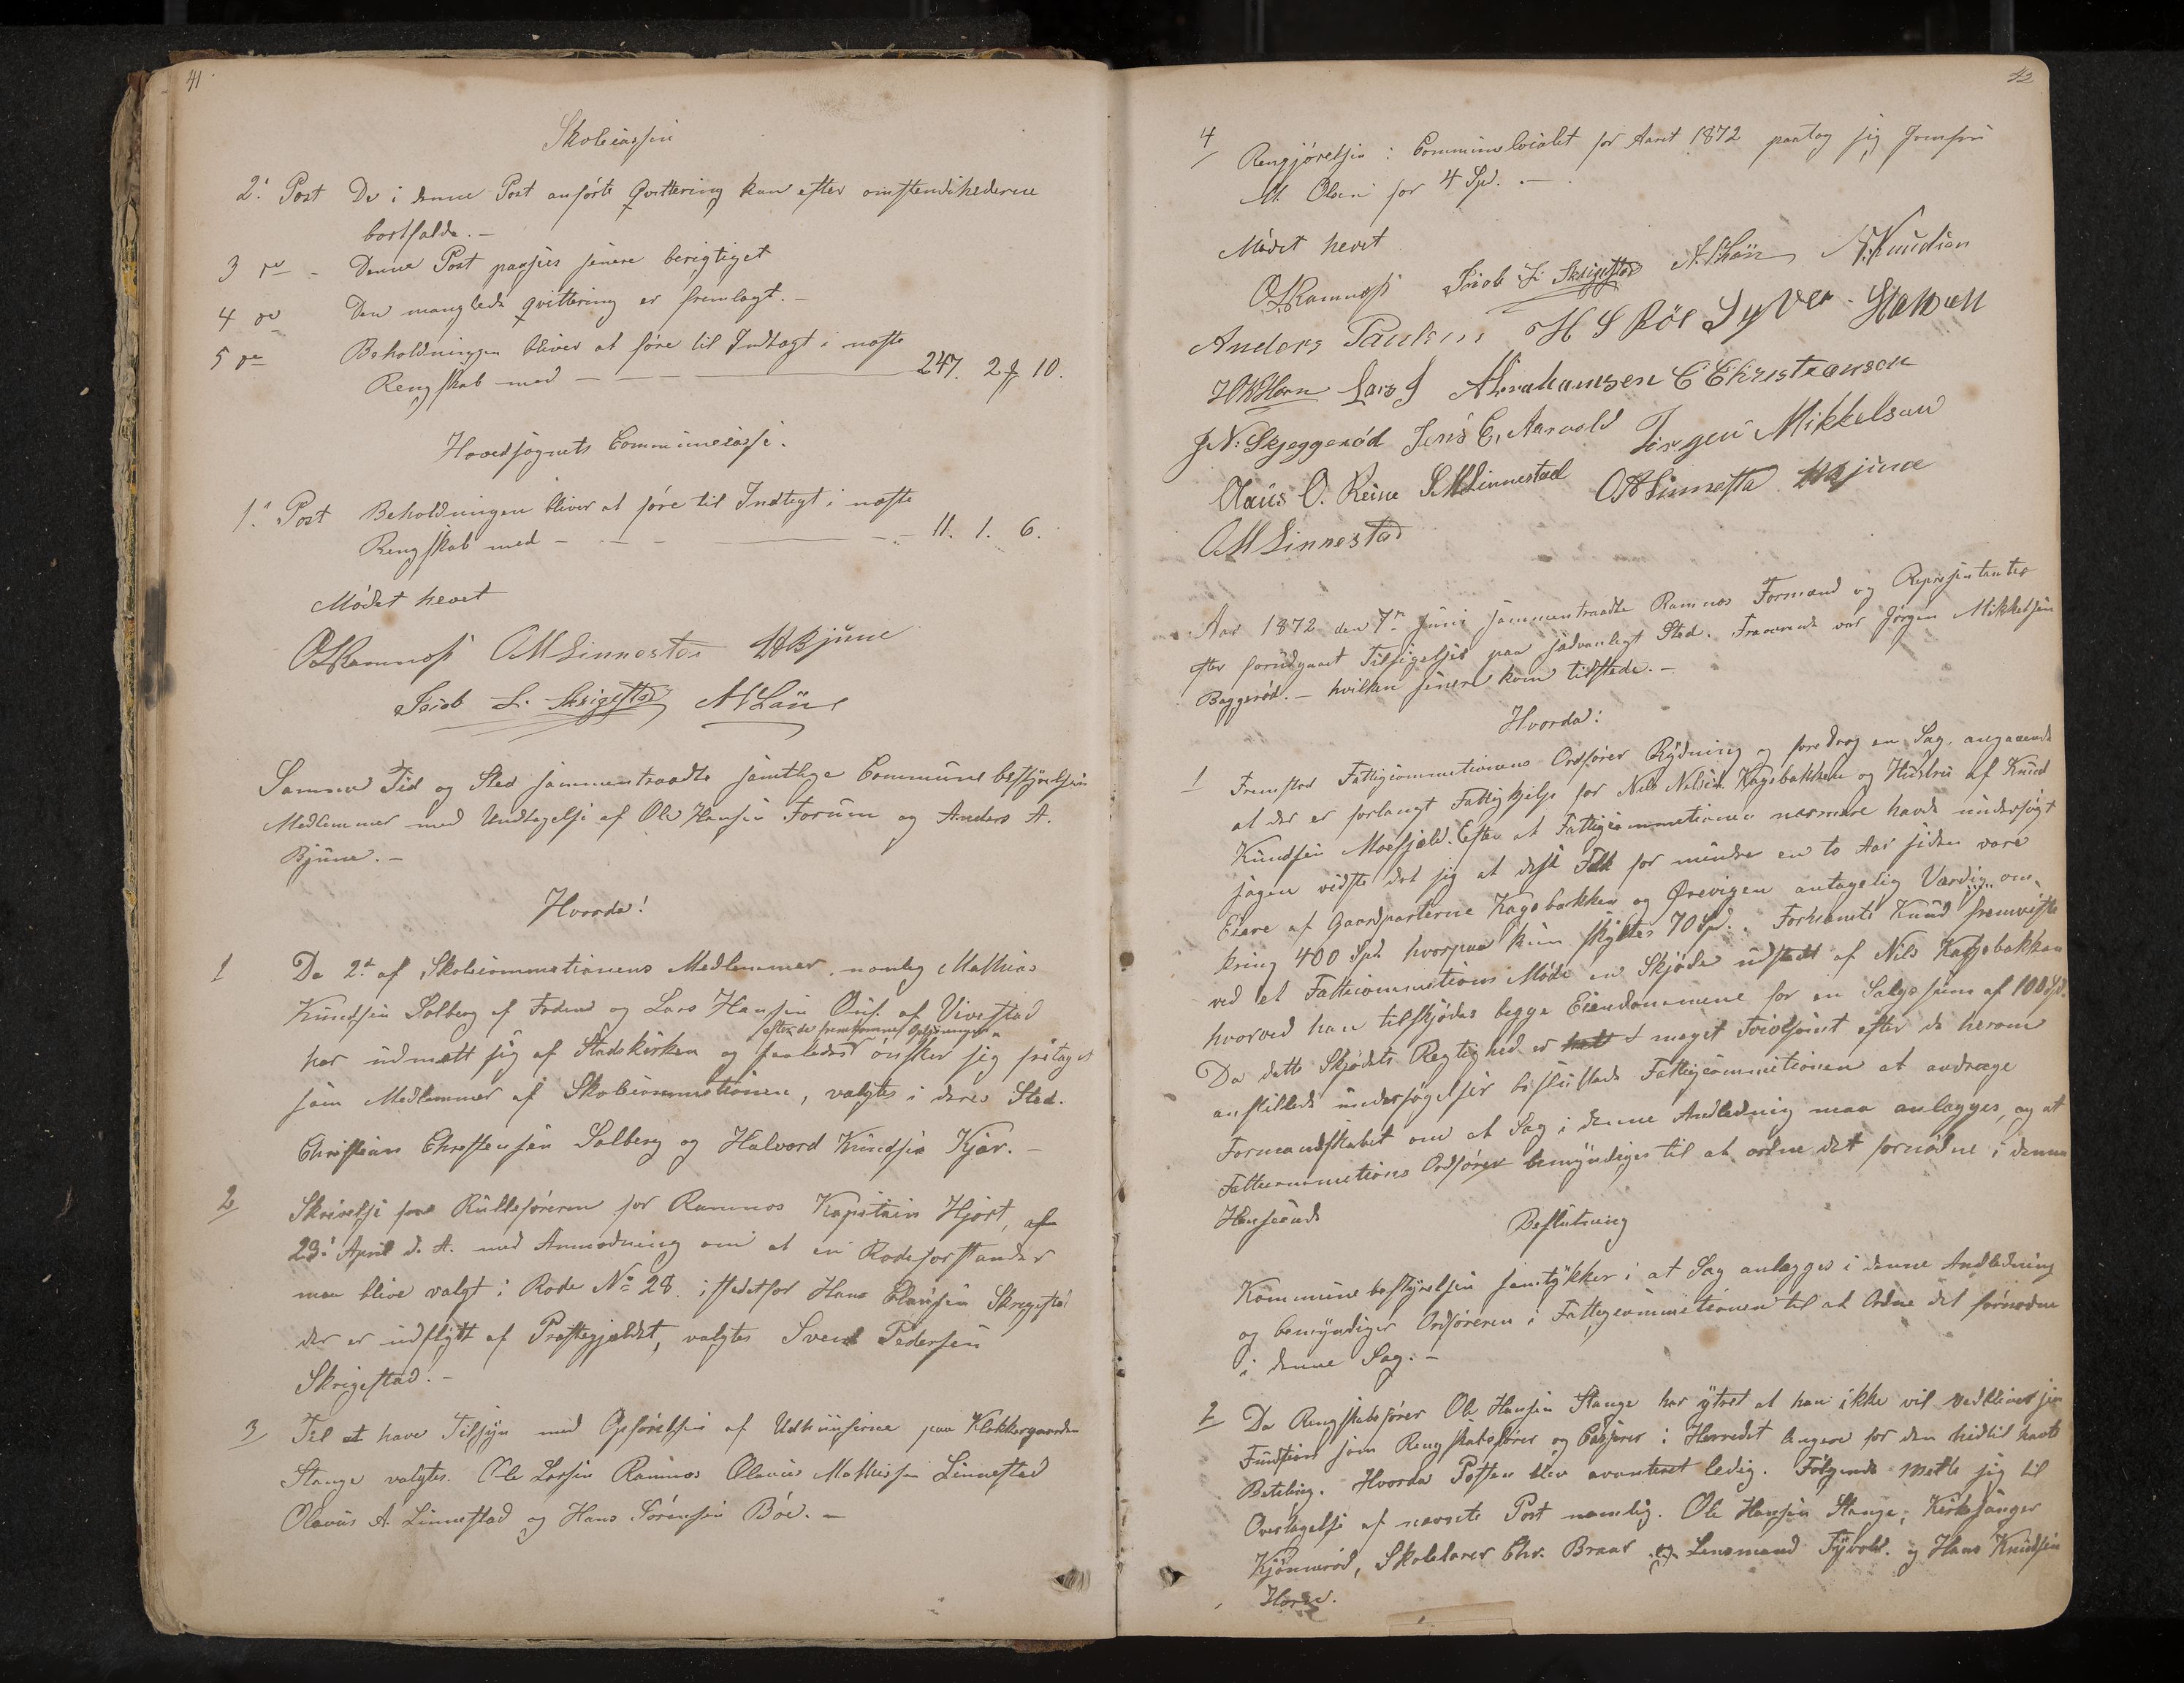 41
Skolecassen
2. Post De i denne Post anførte Qvittering kan efter omstendihederne
bortfalde. -
3 de - Denne Post passer senere berigtiget
4 de Den manglede qvittering er fremlagt. -
5 te Beholdningen bliver at føre til Indtægt i næste
Rengskab med - 247. 2 10.
Hovedsognets Communecasse.
1. Post Beholdningen bliver at føre til Indtegt i næste
Rengskab med - 11. 1. 6.
Mødet hevet
O L Ramnæs OM Linnestad Bjune
Jacob L. Skrigestad
Samme Tid og Sted sammentraadte samtlige Communebestyrelsen
Medlemmer med Undtagelse af Ole Hansen Forum og Anders A.
Bjune. -
Hvorda!
1 Da 2de af Skolecommetionens Medlemmer, nemleg Mathias
Knudsen Solberg af Fodens og Lars Hansen af Vivestad
efter de fremkomne Oplysninger
har udmelt sig af Stadskirken og saaledes ønsker sig fritaget
som Medlemmer af Skolecommetionen, valgtes i deres Sted.
Christian Christensen Solberg og Halvord Knudsen Kjær. -
2 Skrivelse fra Rulleføreren for Ramnes Kapitain Hjort, af
23. April d. A. med Anmodning om at en Rodeforstander
maa blive valgt i Rode No 28. istedetfor Hans Clausen Skregestad
der er udflytt af Prestegjældet, valgtes Svend Pedersen
Skrigestad. -
3 Til at have Tilsyn med Opførelsen af Udhuuserne paa Klokkergaarden
Stange valgtes. Ole Larsen Ramnes Olavus Mathissen Linnestad
Olavus A. Linnestad og Hans Sørensen Bøe. -
42
4 Rengjørelsen i Communelocalet for Aaret 1872 paatog sig Jensine
M. Olsen for 4 Spd. -
Mødet hevet
O L Ramnæs Jacob L. Skrigestad N. Knudsen
Anders Paulsen H S Böe Syver Hansen
H K Horn Lars J Abrahamsen C Christiansen
J N. Skjeggerød Jens C. Aarvold Jørgen Mikkelsen
Claus O. Reine S M Linnestad O A Linnesta Bjune
O M Linnestad
Aar 1872 den 7de Juni sammentraadte Ramnæs Formænd og Representanter
efter forudgaaet Tilsigelse paa sædvanligt Sted. Fraværende var Jørgen Mikkelsen
Baggerød. - hvilken senere kom tilstede. -
Hvorda:
1 Fremstod Fattigcommetionens Ordfører Rydning og foredrog en Sag, angaaende
at der er forlangt Fattighjelp for Nils Nilsen Kagsbakken og Hustru af Knud
Knudsen Moefjeld. Efter at Fattigcommetionen nærmere havde undersøgt
sagen vidste det sig at disse Folk for mindre en to Aar siden vare
Eiere af Gaardparterne Kagsbakken og Ørevigen antagelig Værdig om-
kring 400 Spd hvorpaa kun skyldes 70 Spd. Forhævnte Knud fremviste
ved et Fattecommetions Møde en Skjøde udstedt af Nils Kagsbakken
hvorved han tilskjødes begge Eiendommene for en Salgssum af 100 Spd.
Da dette Skjødets Regtighed er meget Tvivlsomt efter de herom
anstillede undersøgelser besluttede Fattigcommetionen at andrage
Formandskabet om at Sag i denne Anledning maa anlægges, og at
Fattecommetions Ordfører bemyndiges til at ordne det fornødne i denne
Henseende
Beslutning
Kommunebestyrelsen samtykker i at Sag anlægges i denne Andledning
og bemyndiger Ordføreren i Fattigcommetionen til at Ordne det fornødne
i denne Sag. -
2 Da Rengskabsfører Ole Hansen Stange har ytret at han ikke vil vedblive sin
Funktion som Rengskabsfører og Casserer i Herredet længere for den hidtil havte
Betaling. Hvorda Posten blev avanteret ledig. Følgende melte sig til
Overtagelse af nævnte Post nemlig. Ole Hansen Stange, Kirkesanger
Kjønnerød, Skolelærer Chr. Braar og Lensmand Fyrvold. og Hans Knudsen
Horn.